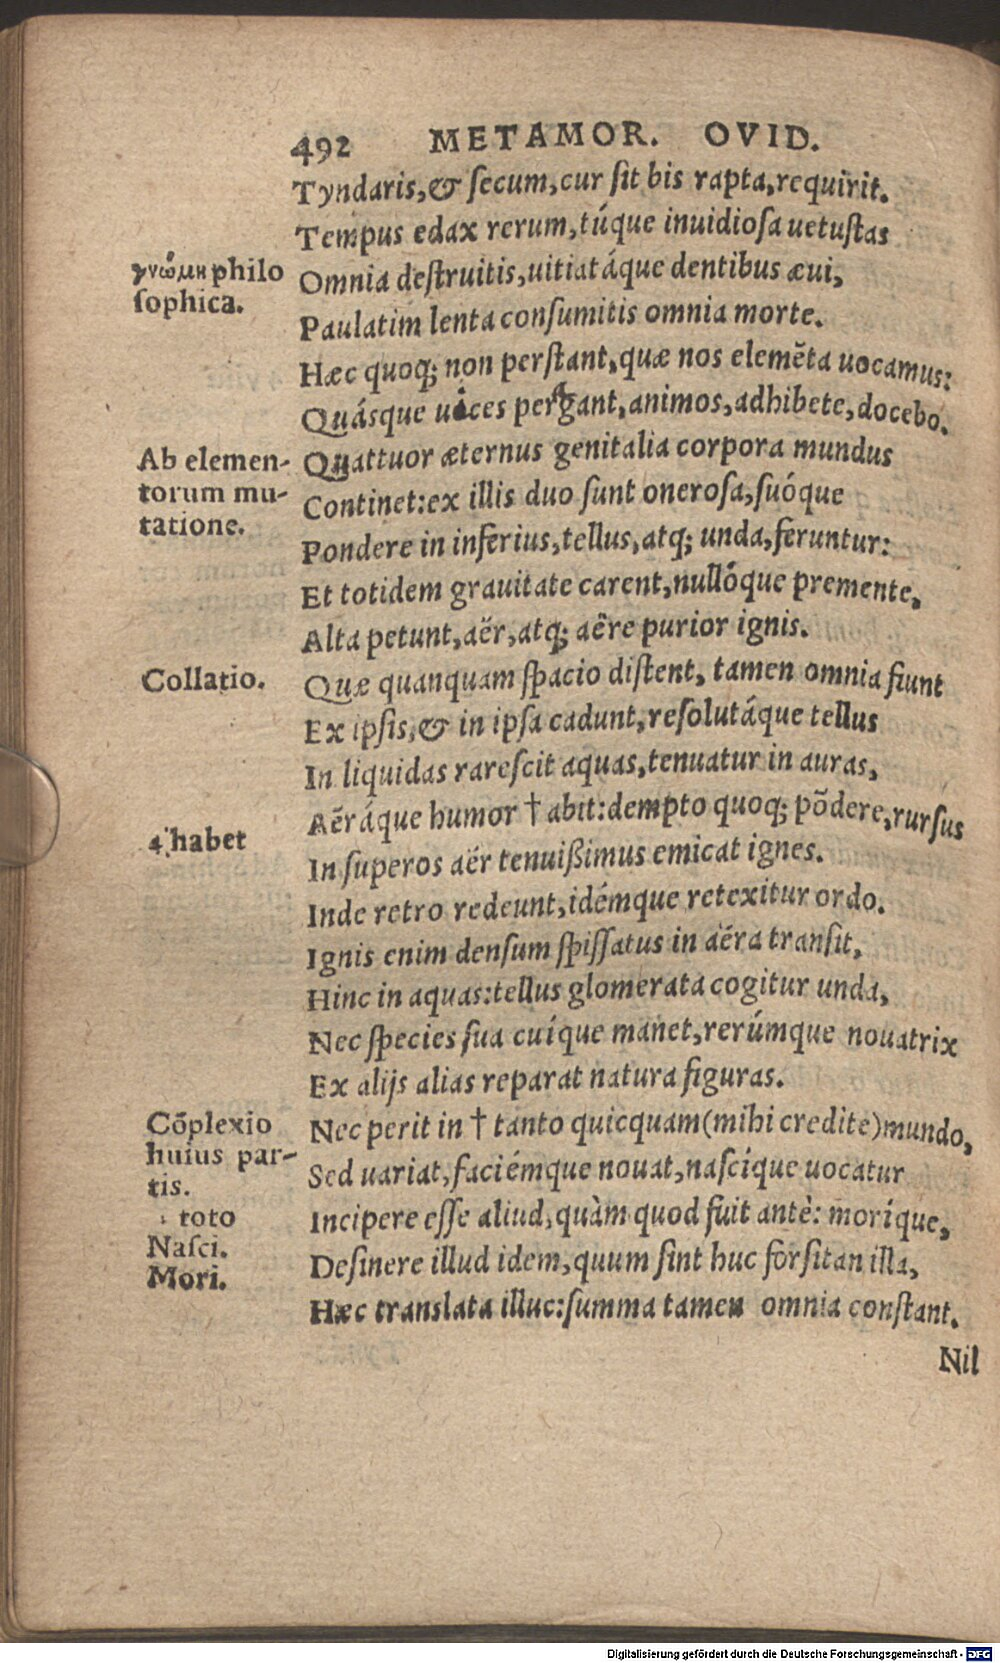 492 METAMOR. OVID.
Tyndaris,& ſecum,cur ſit bis rapta,requirit.
Tempus edax rerum,túque inuidioſa uetuſtas
γνώμη philo
ſophica.
Omnia deſtruitis,uitiatáque dentibus æui,
Paulatim lenta conſumitis omnia morte.
Hæc quoq; non perſtant,quæ nos elemẽta uocamus:
Quásque uices peragant,animos,adhibete,docebo.
Ab elemen-
torum mu-
tatione.
Quattuor æternus genitalia corpora mundus
Continet:ex illis duo ſunt oneroſa,ſuóque
Pondere in inferius,tellus,atq; unda,feruntur:
Et totidem grauitate carent,nullóque premente,
Alta petunt,aër,atq; aëre purior ignis.
Collatio.
Quæ quanquam ſpacio diſtent, tamen omnia fiunt
Ex ipſis,& in ipſa cadunt,reſolutáque tellus
In liquidas rareſcit aquas,tenuatur in auras,
Aëráque humor † abit:dempto quoq; põdere,rurſus
habet
In ſuperos aër tenuißimus emicat ignes.
Inde retro redeunt,idémque retexitur ordo.
Ignis enim denſum ſpiſſatus in aëra tranſit,
Hinc in aquas:tellus glomerata cogitur unda,
Nec ſpecies ſua cuíque manet,rerúmque nouatrix
Ex alijs alias reparat natura figuras.
Cõplexio
huius par-
tis.
toto
Naſci.
Mori.
Nec perit in † tanto quicquam(mihi credite)mundo,
Sed uariat,faciémque nouat,naſcíque uocatur
Incipere eſſe aliud,quàm quod fuit antè: moríque,
Deſinere illud idem,quum ſint huc forſitan illa,
Hæc translata illuc:ſumma tamen omnia conſtant.
Nil
Digitalisierung gefördert durch die Deutsche Forschungsgemeinschaft - DFG